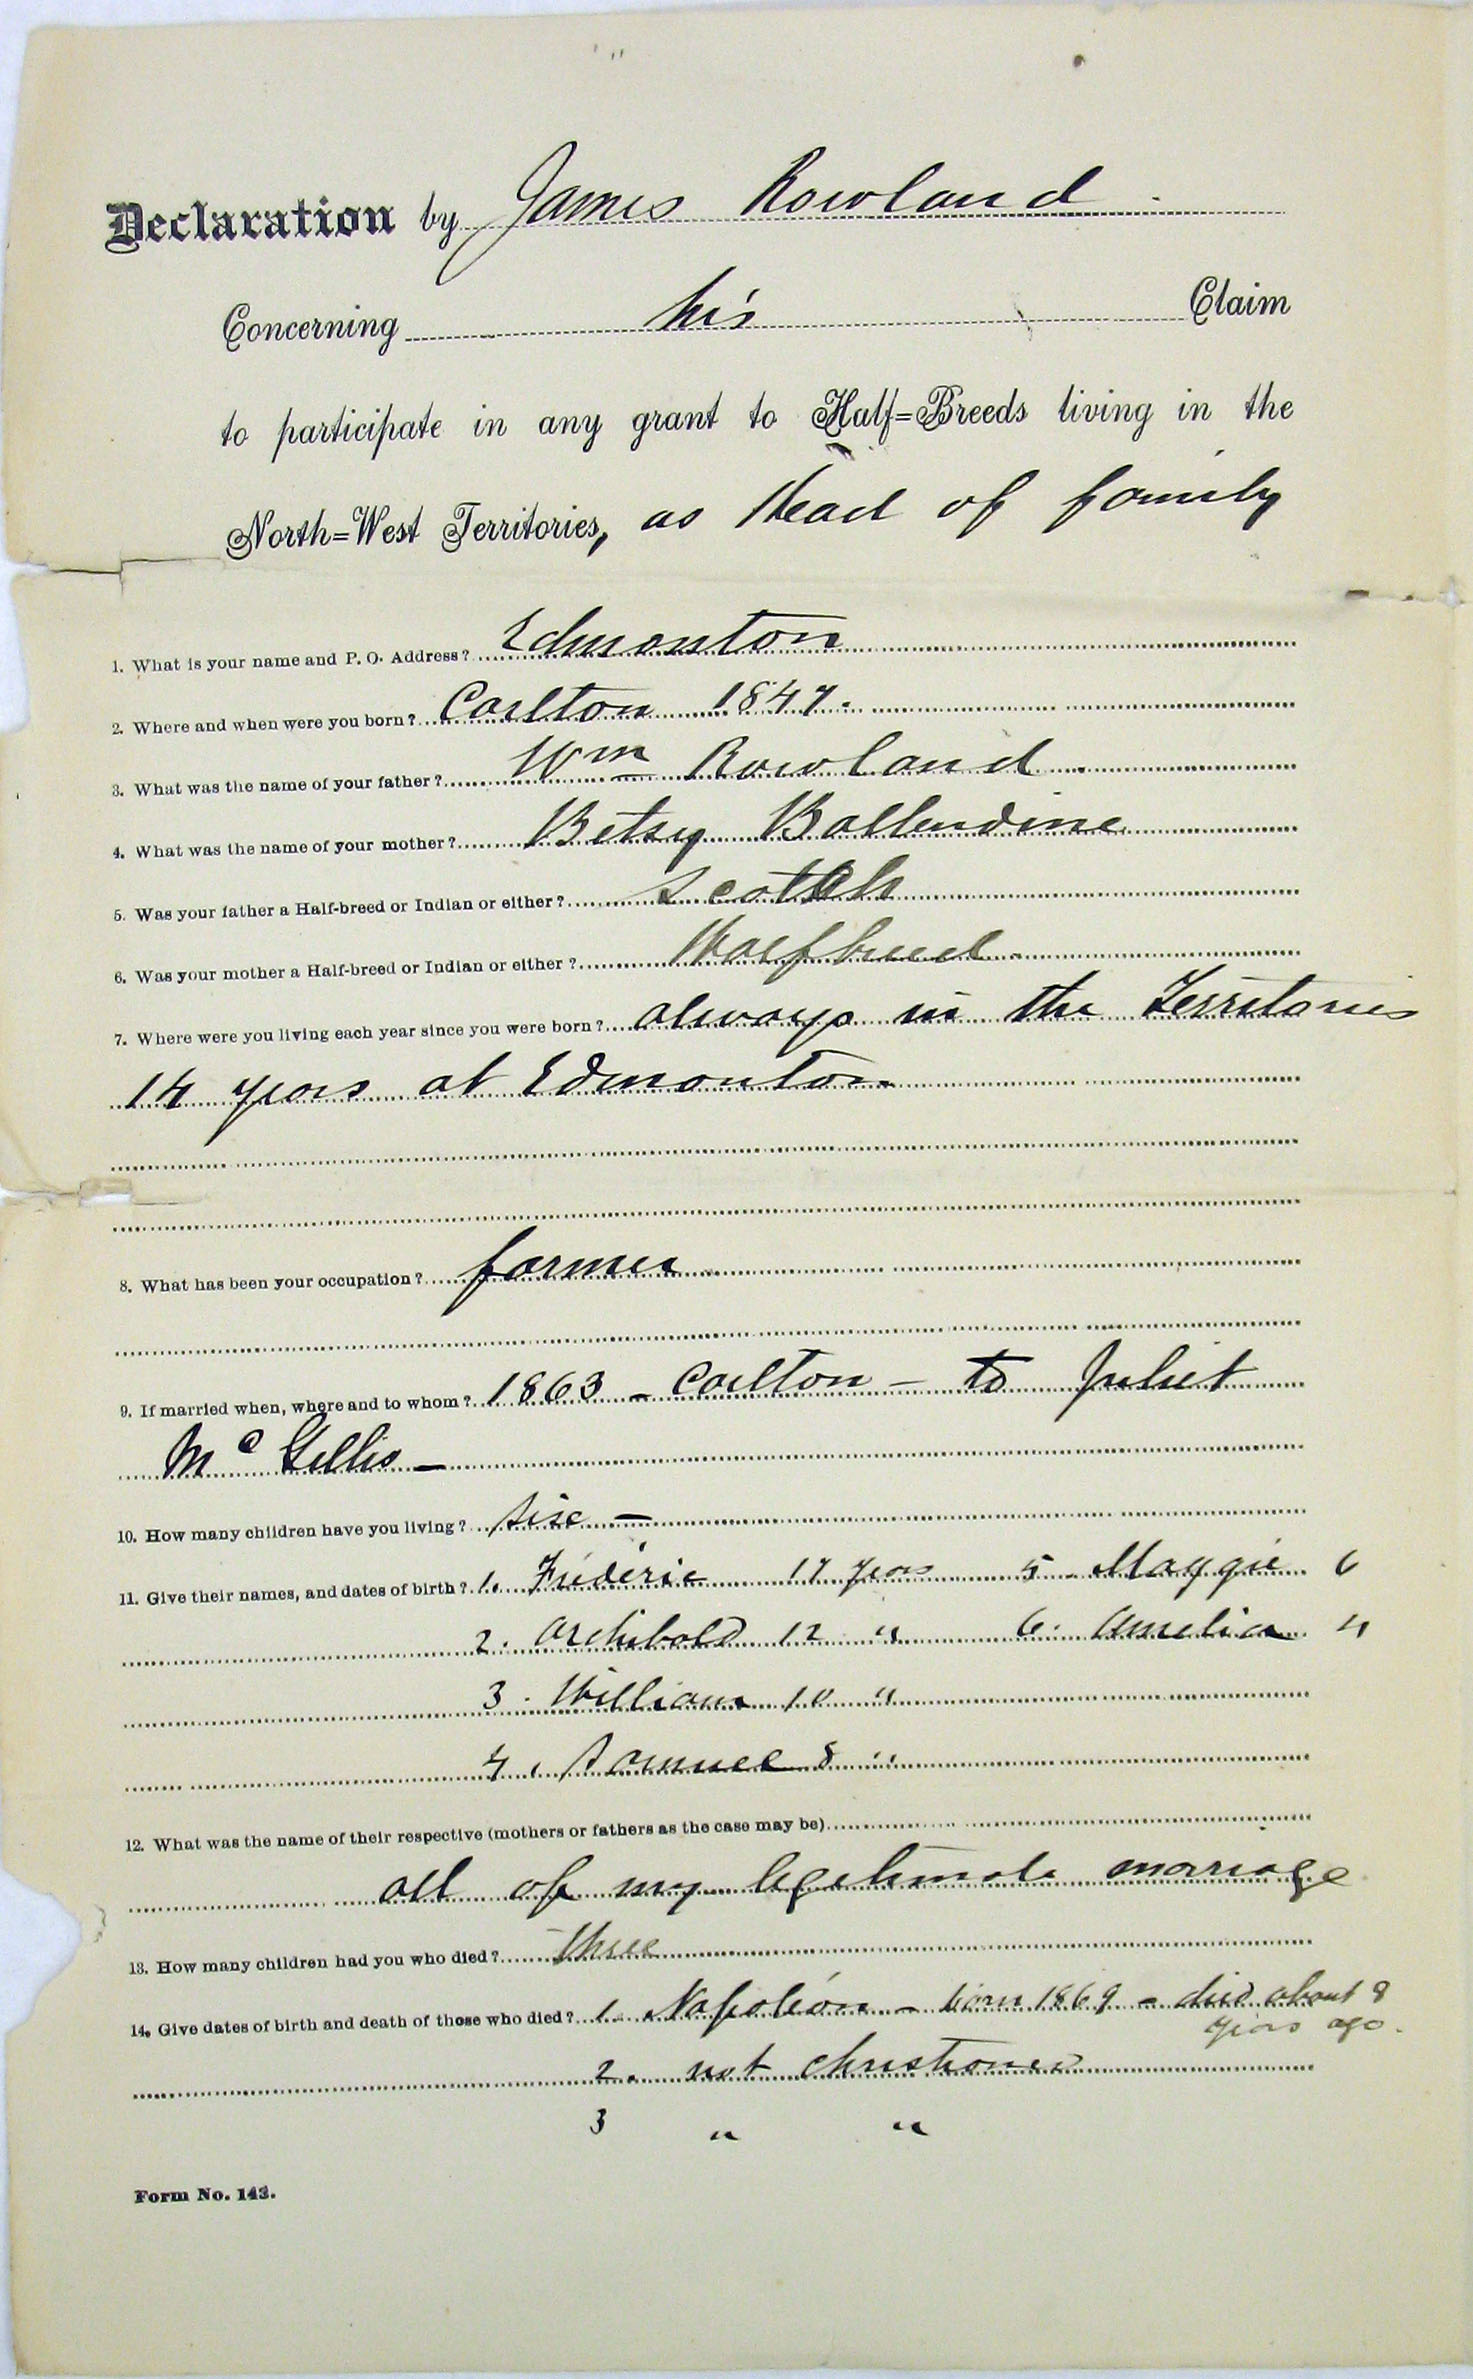 Declaration by James Rowland
Concerning his Claim
to participate in any grant to Half=Breeds living in the
North=West Territories, as Head of family
1. What is your name and P. O. Address? Edmonton
2. Where and when were you born? Carlton 1847.
3. What was the name of your father? Wm Rowland.
4. What was the name of your mother? Betsy Ballendine
5. Was your father a Half-breed or Indian or either? Scotch
6. Was your mother a Half-breed or Indian or either? Halfbreed.
7. Where were you living each year since you were born? always in the Territories
14 years at Edmonton.
8. What has been your occupation? farmer
9. If married when, where and to whom? 1863 – Carlton – to Juliet
Mc Gillis –
10. How many children have you living? Six –
11. Give their names, and dates of birth? 1. Fréderic 17 years 5. Maggie 6
2. Archibald 12 " 6. Amelia 4
3. William 10 "
4. Samuel 8 "
12. What was the name of their respective (mothers or fathers as the case may be)
all of my legitimate marriage
13. How many children had you who died? three
14. Give dates of birth and death of those who died? 1. Napoléon – born 1869 – died about 8
years ago.
2. not christened
3 " "
Form No. 143.